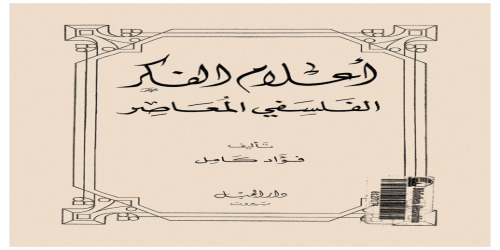 أعلام الفكر
الفلسفي المعاصر
تأليف
فؤاد كامل
دار الجيل
بيروت